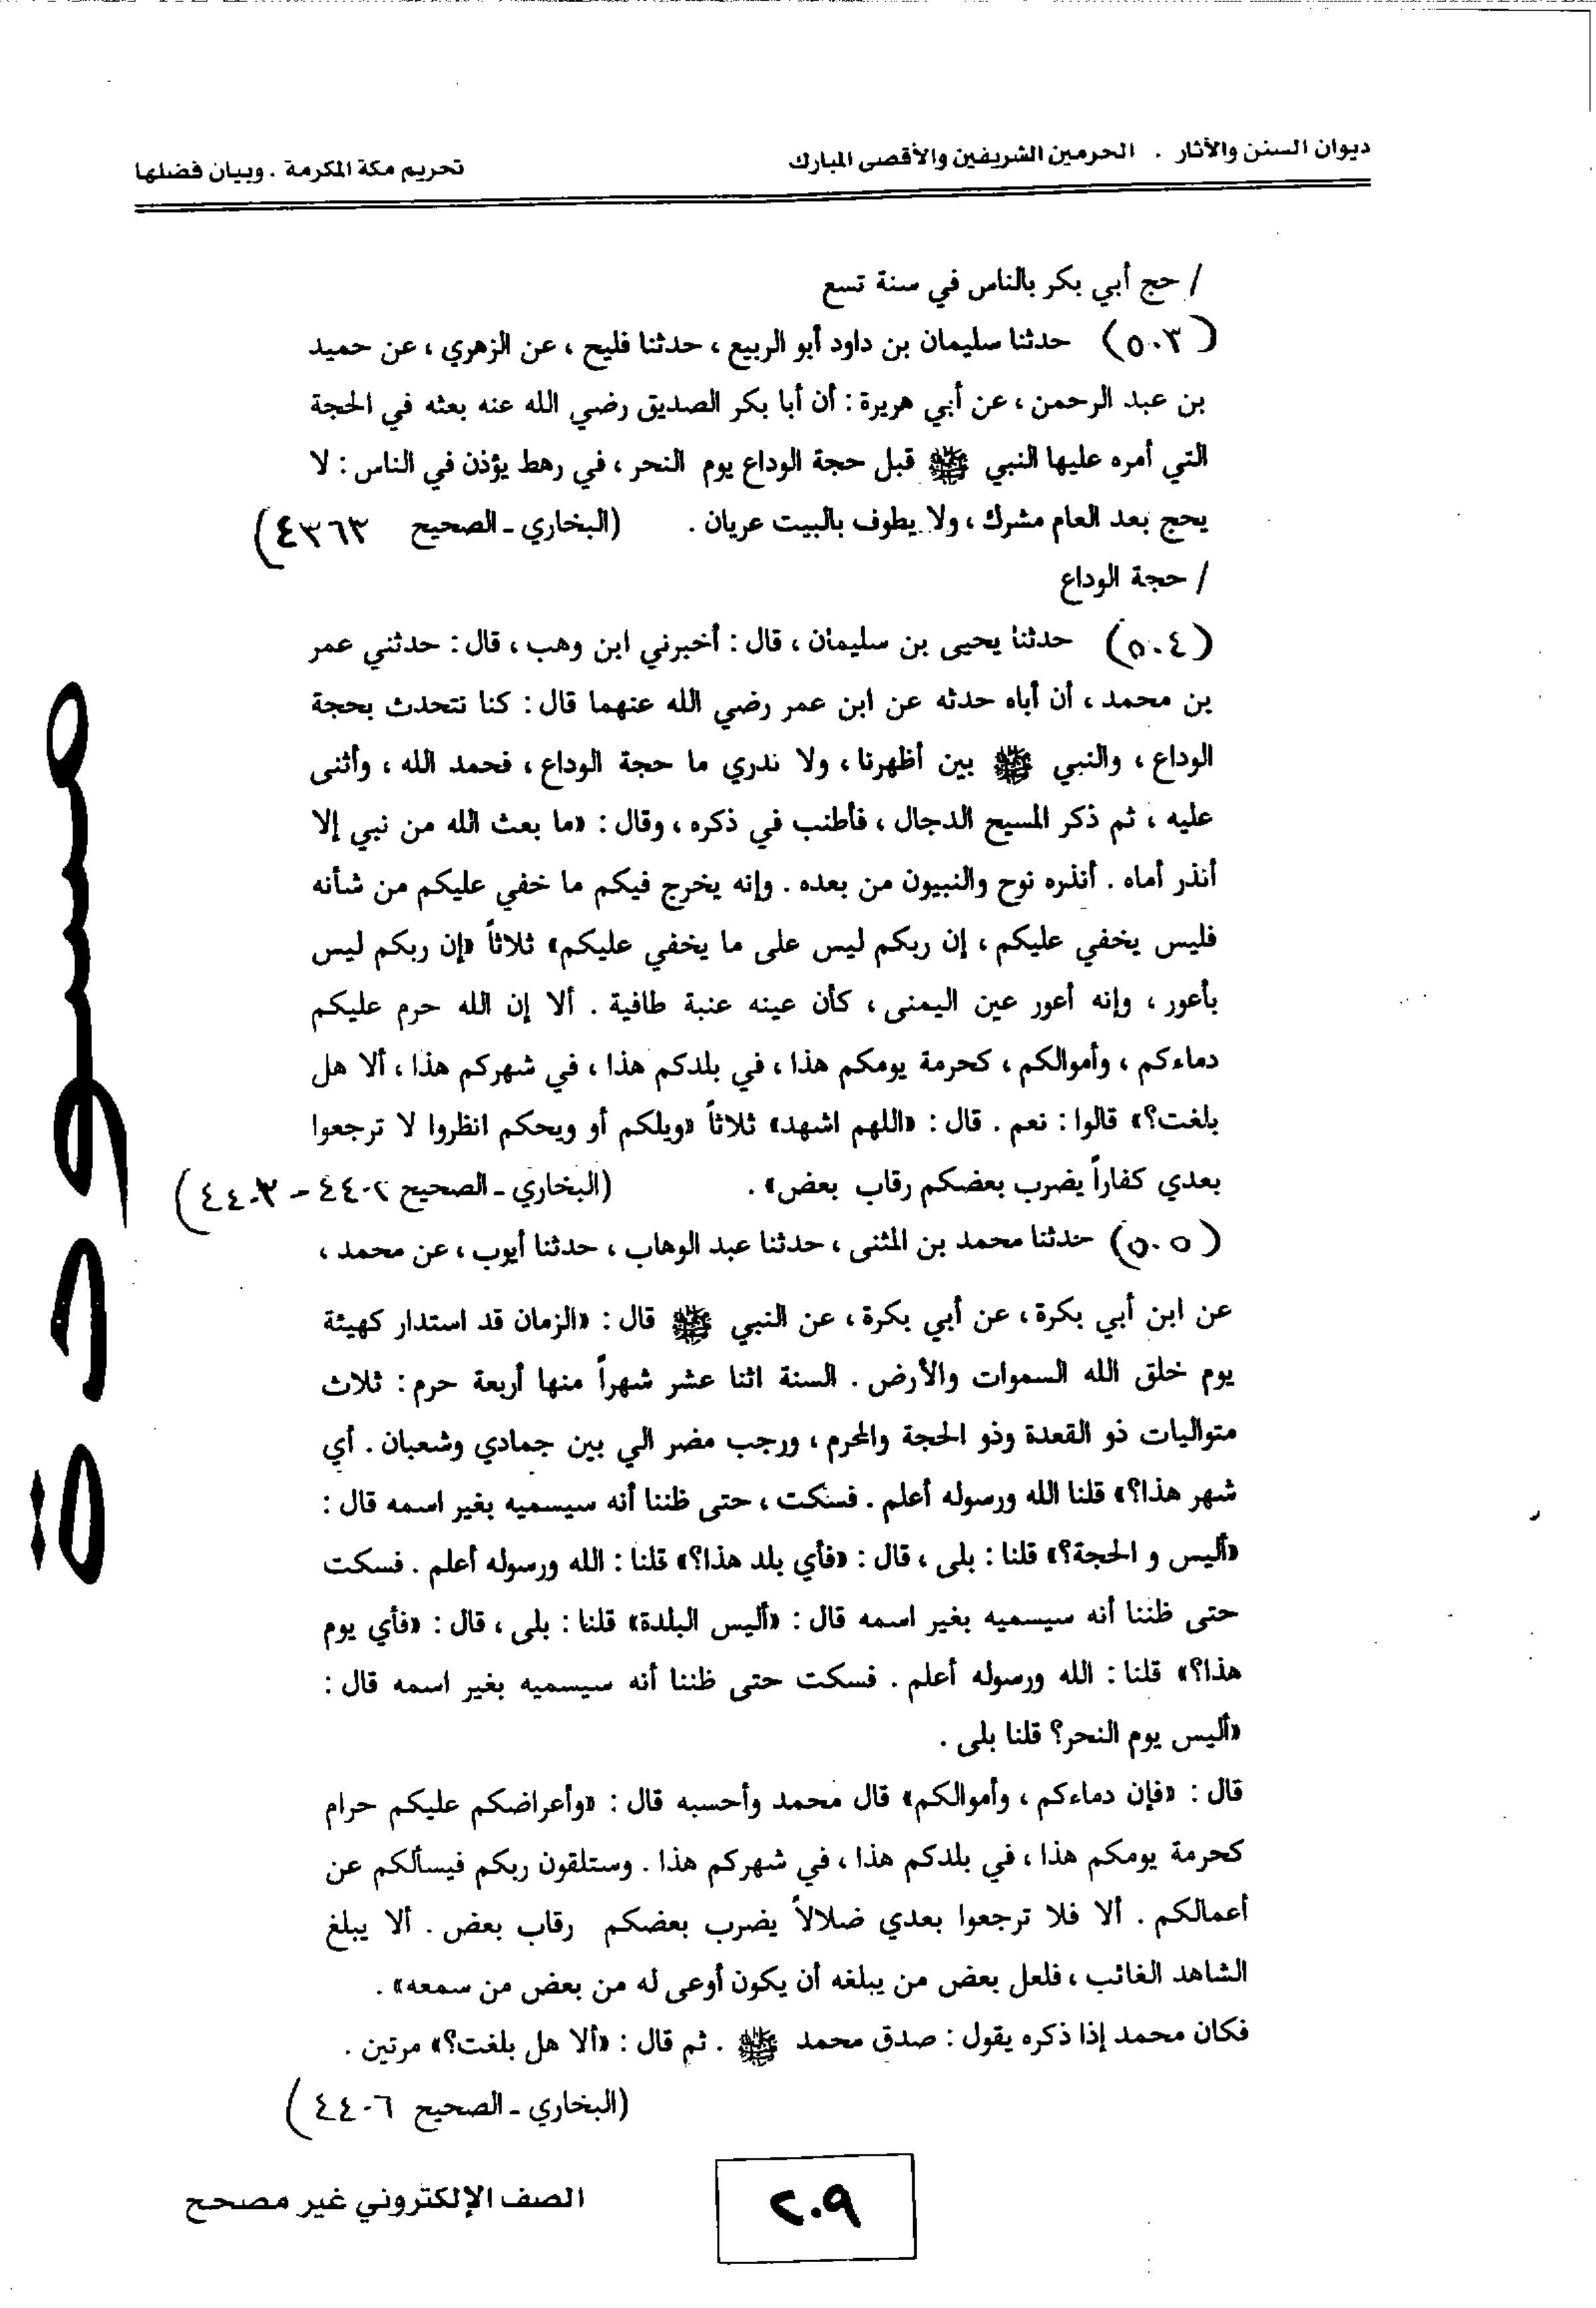 ديوان السنن والآثار . الحرمين الشريفين والأقصى المبارك
تحريم مكة المكرمة . وبيان فضلها
/ حج أبي بكر بالناس في سنة تسع
(٥٠٣) حدثنا سليمان بن داود أبو الربيع ، حدثنا فليح ، عن الزهري ، عن حميد
بن عبد الرحمن ، عن أبي هريرة : أن أبا بكر الصديق رضي الله عنه بعثه في الحجة
التي أمره عليها النبي ﷺ قبل حجة الوداع يوم النحر ، في رهط يؤذن في الناس : لا
يحج بعد العام مشرك ، ولا يطوف بالبيت عريان . (البخاري ـ الصحيح ٤٣٦٣)
/ حجة الوداع
(٥٠٤) حدثنا يحيى بن سليمان ، قال : أخبرني ابن وهب ، قال : حدثني عمر
بن محمد ، أن أباه حدثه عن ابن عمر رضي الله عنهما قال : كنا نتحدث بحجة
الوداع ، والنبي ﷺ بين أظهرنا ، ولا ندري ما حجة الوداع ، فحمد الله ، وأثنى
عليه ، ثم ذكر المسيح الدجال ، فأطنب في ذكره ، وقال : «ما بعث الله من نبي إلا
أنذر أماه . أنذره نوح والنبيون من بعده . وإنه يخرج فيكم ما خفي عليكم من شأنه
فليس يخفي عليكم ، إن ربكم ليس على ما يخفي عليكم» ثلاثاً «إن ربكم ليس
بأعور ، وإنه أعور عين اليمنى ، كأن عينه عنبة طافية . ألا إن الله حرم عليكم
دماءكم ، وأموالكم ، كحرمة يومكم هذا ، في بلدكم هذا ، في شهركم هذا ، ألا هل
بلغت؟» قالوا : نعم . قال : «اللهم اشهد» ثلاثاً «ويلكم أو ويحكم انظروا لا ترجعوا
بعدي كفاراً يضرب بعضكم رقاب بعض» . (البخاري ـ الصحيح ٤٤٠٢ – ٤٤٠٣)
(٥٠٥) حدثنا محمد بن المثنى ، حدثنا عبد الوهاب ، حدثنا أيوب ، عن محمد ،
عن ابن أبي بكرة ، عن أبي بكرة ، عن النبي ﷺ قال : «الزمان قد استدار كهيئة
يوم خلق الله السموات والأرض . السنة اثنا عشر شهراً منها أربعة حرم : ثلاث
متواليات ذو القعدة وذو الحجة والمحرم ، ورجب مضر الي بين جمادي وشعبان . أي
شهر هذا؟» قلنا الله ورسوله أعلم . فسكت ، حتى ظننا أنه سيسميه بغير اسمه قال :
«أليس و الحجة؟» قلنا : بلى ، قال : «فأي بلد هذا؟» قلنا : الله ورسوله أعلم . فسكت
حتى ظننا أنه سيسميه بغير اسمه قال : «أليس البلدة» قلنا : بلى ، قال : «فأي يوم
هذا؟» قلنا : الله ورسوله أعلم . فسكت حتى ظننا أنه سيسميه بغير اسمه قال :
«أليس يوم النحر؟ قلنا بلى .
قال : «فإن دماءكم ، وأموالكم» قال محمد وأحسبه قال : «وأعراضكم عليكم حرام
كحرمة يومكم هذا ، في بلدكم هذا ، في شهركم هذا . وستلقون ربكم فيسألكم عن
أعمالكم . ألا فلا ترجعوا بعدي ضلالاً يضرب بعضكم رقاب بعض . ألا يبلغ
الشاهد الغائب ، فلعل بعض من يبلغه أن يكون أوعى له من بعض من سمعه» .
فكان محمد إذا ذكره يقول : صدق محمد ﷺ . ثم قال : «ألا هل بلغت؟» مرتين .
(البخاري ـ الصحيح ٤٤٠٦)
٢٠٩
الصف الإلكتروني غير مصحح
مسودة